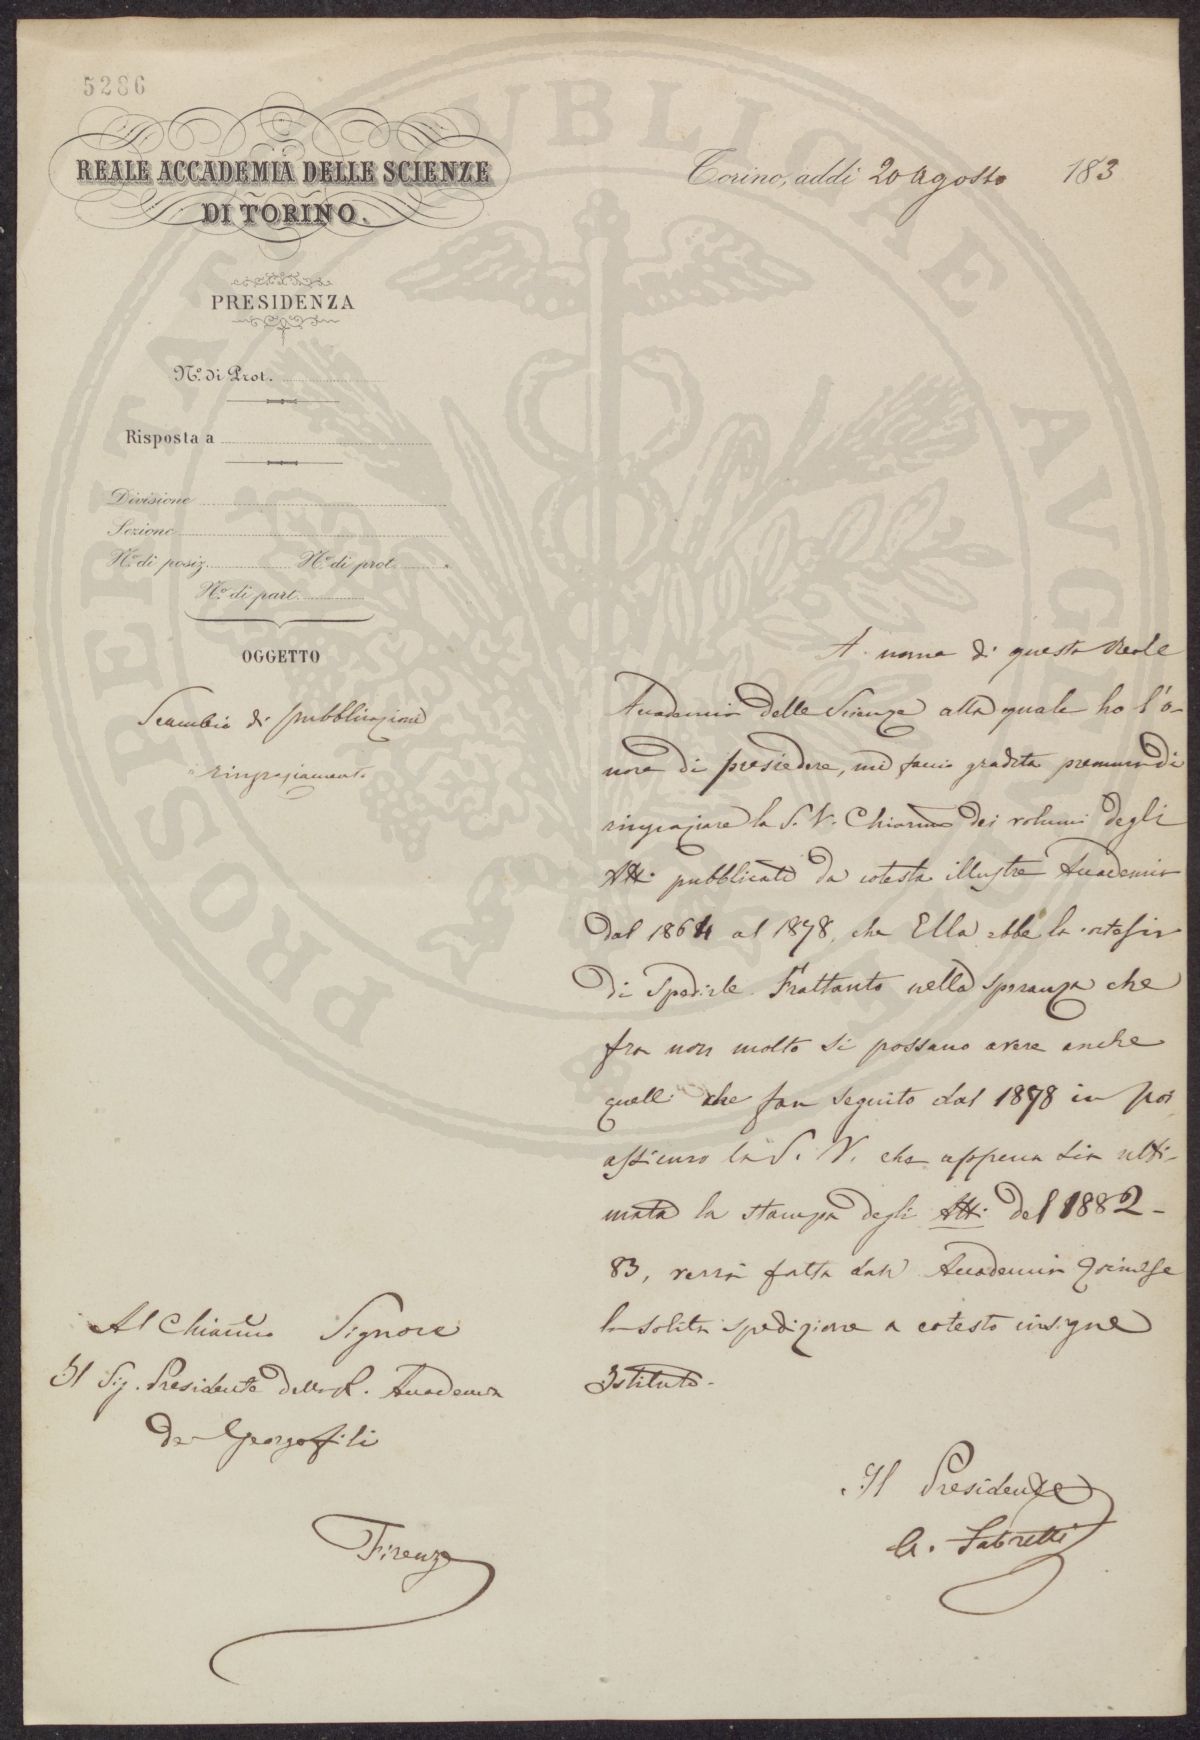 5286
REALE ACCADEMIA DELLE SCIENZE
DI TORINO.
Torino, addì 20 Agosto 183
PRESIDENZA
N.º di Prot.
Risposta a
Divisione
Sezione
N.º di posiz. N.º di prot.
N.º di part.
OGGETTO
Scambio di pubblicazioni
ringraziamento
A nome di questa Reale
Accademia delle Scienze alla quale ho l'o-
nore di presiedere, mi faccio gradita premura di
ringraziare la S. V. Chiarma dei volumi degli
Atti pubblicati da cotesta illustre Accademia
dal 1864 al 1878, che Ella ebbe la cortesia
di spedirle. Frattanto nella speranza che
fra non molto si possano avere anche
quelli che fan seguito dal 1878 in poi,
assicuro la S. V. che appena sia ulti-
mata la stampa degli Atti del 1882-
83, verrà fatta dall' Accademia Torinese
la solita spedizione a cotesto insigne
Istituto.
Al Chiarmo Signore
Il Sig. Presidente della R. Accademia
de Georgofili
Firenze
Il Presidente
A. Fabretti
PROSPERITATI PUBLICAE AVGENDAE